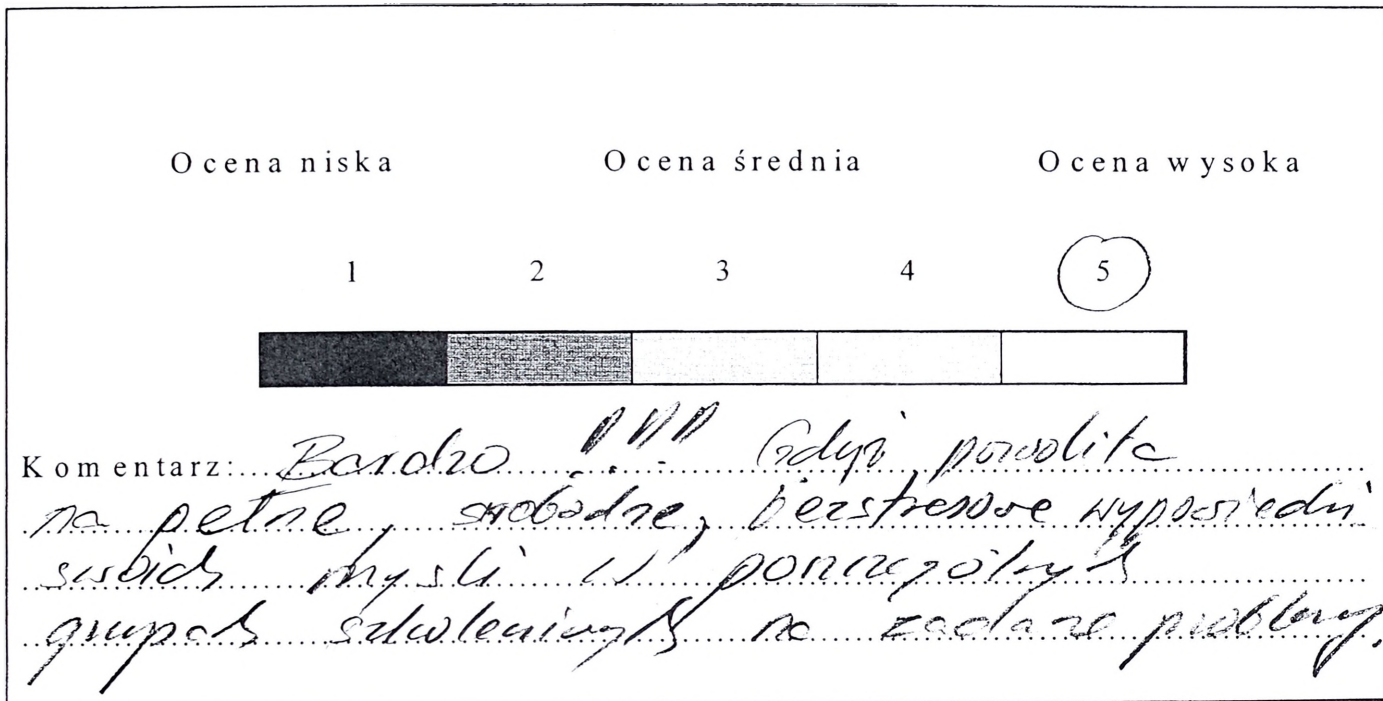 Ocena niska Ocena średnia Ocena wysoka
1 2 3 4 5
Komentarz: Bardzo !!! Gdyż pozwoliła
na pełne, swobodne, bezstresowe wypowiedzi
swoich myśli w poszczególnych
grupach szkoleniowych na zadane problemy.